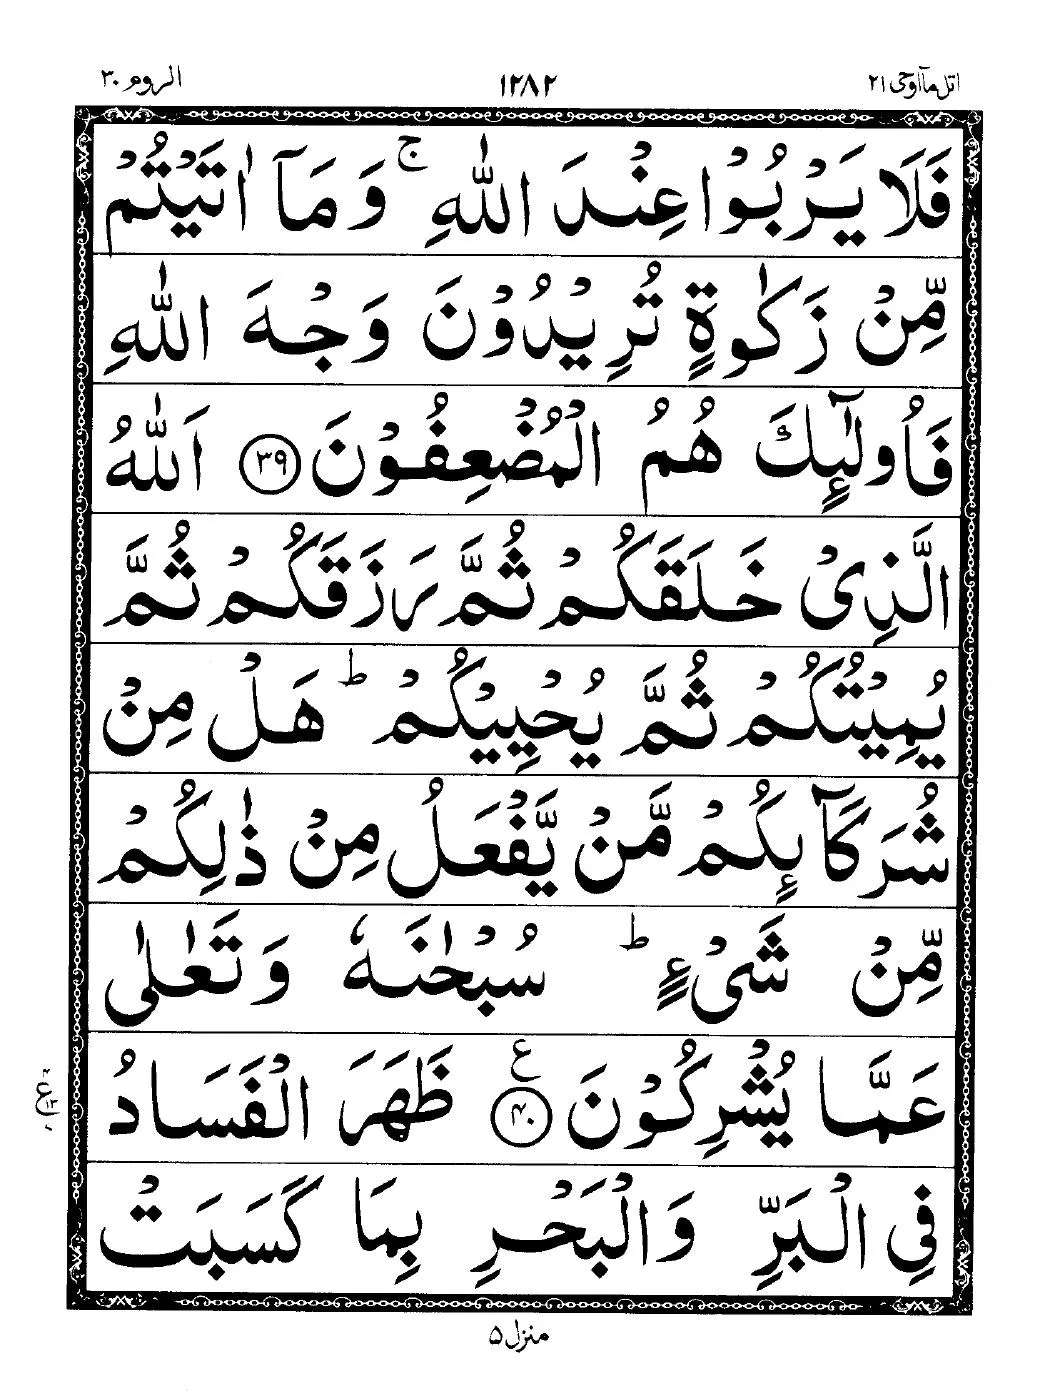 اتل ماۤ اوحی ۲۱
۱۲۸۲
الروم ۳۰
فَلَا یَرْبُوْا عِنْدَ اللّٰهِ ۚ وَ مَاۤ اٰتَیْتُمْ
مِّنْ زَكٰوةٍ تُرِیْدُوْنَ وَجْهَ اللّٰهِ
فَاُولٰٓىِٕكَ هُمُ الْمُضْعِفُوْنَ ﴿۳۹﴾ اَللّٰهُ
الَّذِیْ خَلَقَكُمْ ثُمَّ رَزَقَكُمْ ثُمَّ
یُمِیْتُكُمْ ثُمَّ یُحْیِیْكُمْ ؕ هَلْ مِنْ
شُرَكَآىِٕكُمْ مَّنْ یَّفْعَلُ مِنْ ذٰلِكُمْ
مِّنْ شَیْءٍ ؕ سُبْحٰنَهٗ وَ تَعٰلٰی
عَمَّا یُشْرِكُوْنَ ﴿۴۰﴾ ع ظَهَرَ الْفَسَادُ
فِی الْبَرِّ وَ الْبَحْرِ بِمَا كَسَبَتْ
منزل ۵